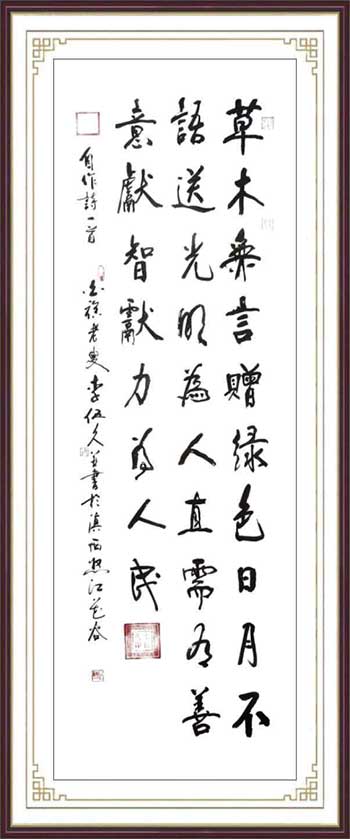 草木無言贈绿色日月不
語送光明為人直需有善
意獻智獻力為人民
自作詩一首 白族老叟李伍久並書於滇西怒江